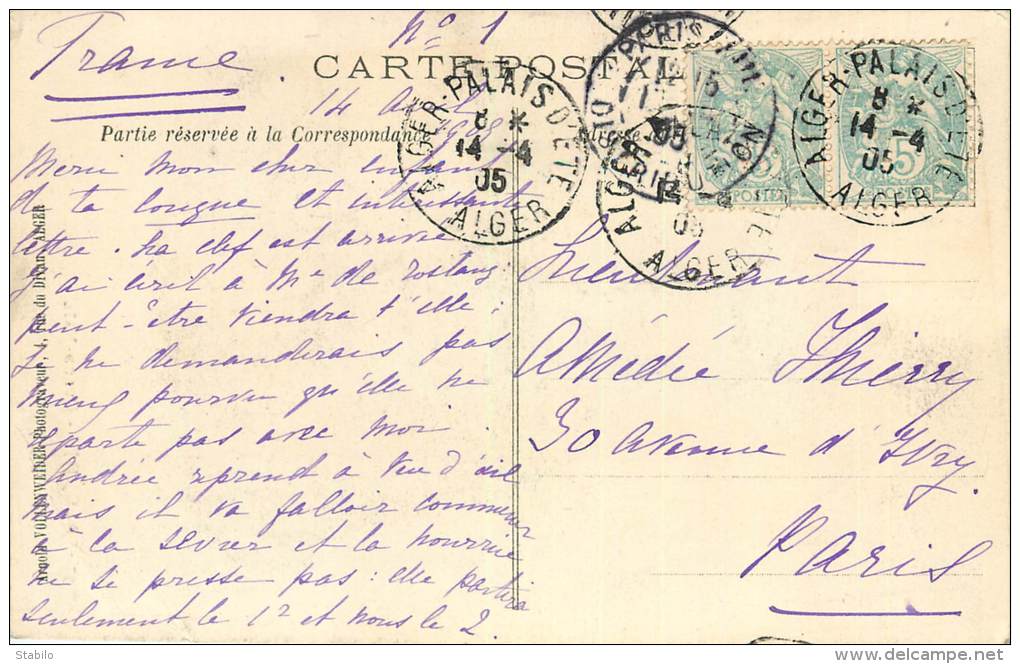 France
N° 1
CARTE POSTALE
14 avril
1905
Partie réservée à la Correspondance
Adresse
Merci mon cher enfant
de ta longue et intéressante
lettre. La clef est arrivée
j'ai écrit à Me de
peut-être viendra t'elle :
Je ne demanderais pas
mieux pourvu qu'elle ne
reparte pas avec moi
Andrée reprend à vue d'œil
mais il va falloir commencer
à la sevrer et la nourrice
ne se presse pas : elle partira
seulement le 1er et nous le 2.
Lieutenant
Amédée Thierry
30 avenue d'Ivry.
Paris
ALGER-PALAIS D'ÉTÉ
8 *
14 -4
05
ALGER
ALGER-PALAIS D'ÉTÉ
8 *
14 -4
05
ALGER
ALGER
14 -4
05
ALGER
PARIS XIII
POSTES
5
POSTES
Arnold VOLLENWEIDER Photograveur, 4, ALGER
Stabilo
www.delcampe.net